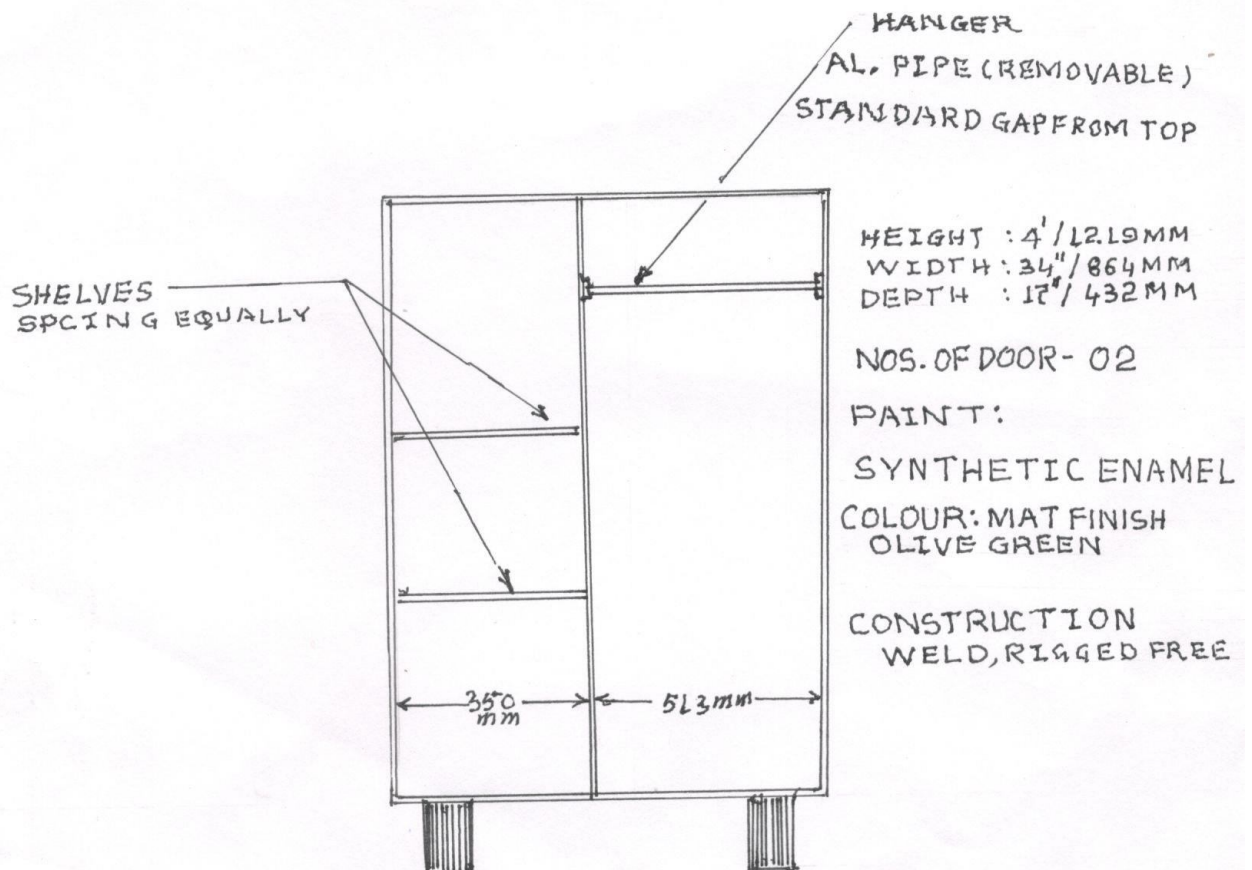 HANGER
AL. PIPE (REMOVABLE)
STANDARD GAP FROM TOP
SHELVES
SPCING EQUALLY
HEIGHT : 4'/1219MM
WIDTH : 34"/864MM
DEPTH : 17"/432MM
NOS. OF DOOR- 02
PAINT:
SYNTHETIC ENAMEL
COLOUR: MAT FINISH
OLIVE GREEN
CONSTRUCTION
WELD, RIGGED FREE
350
mm
513mm